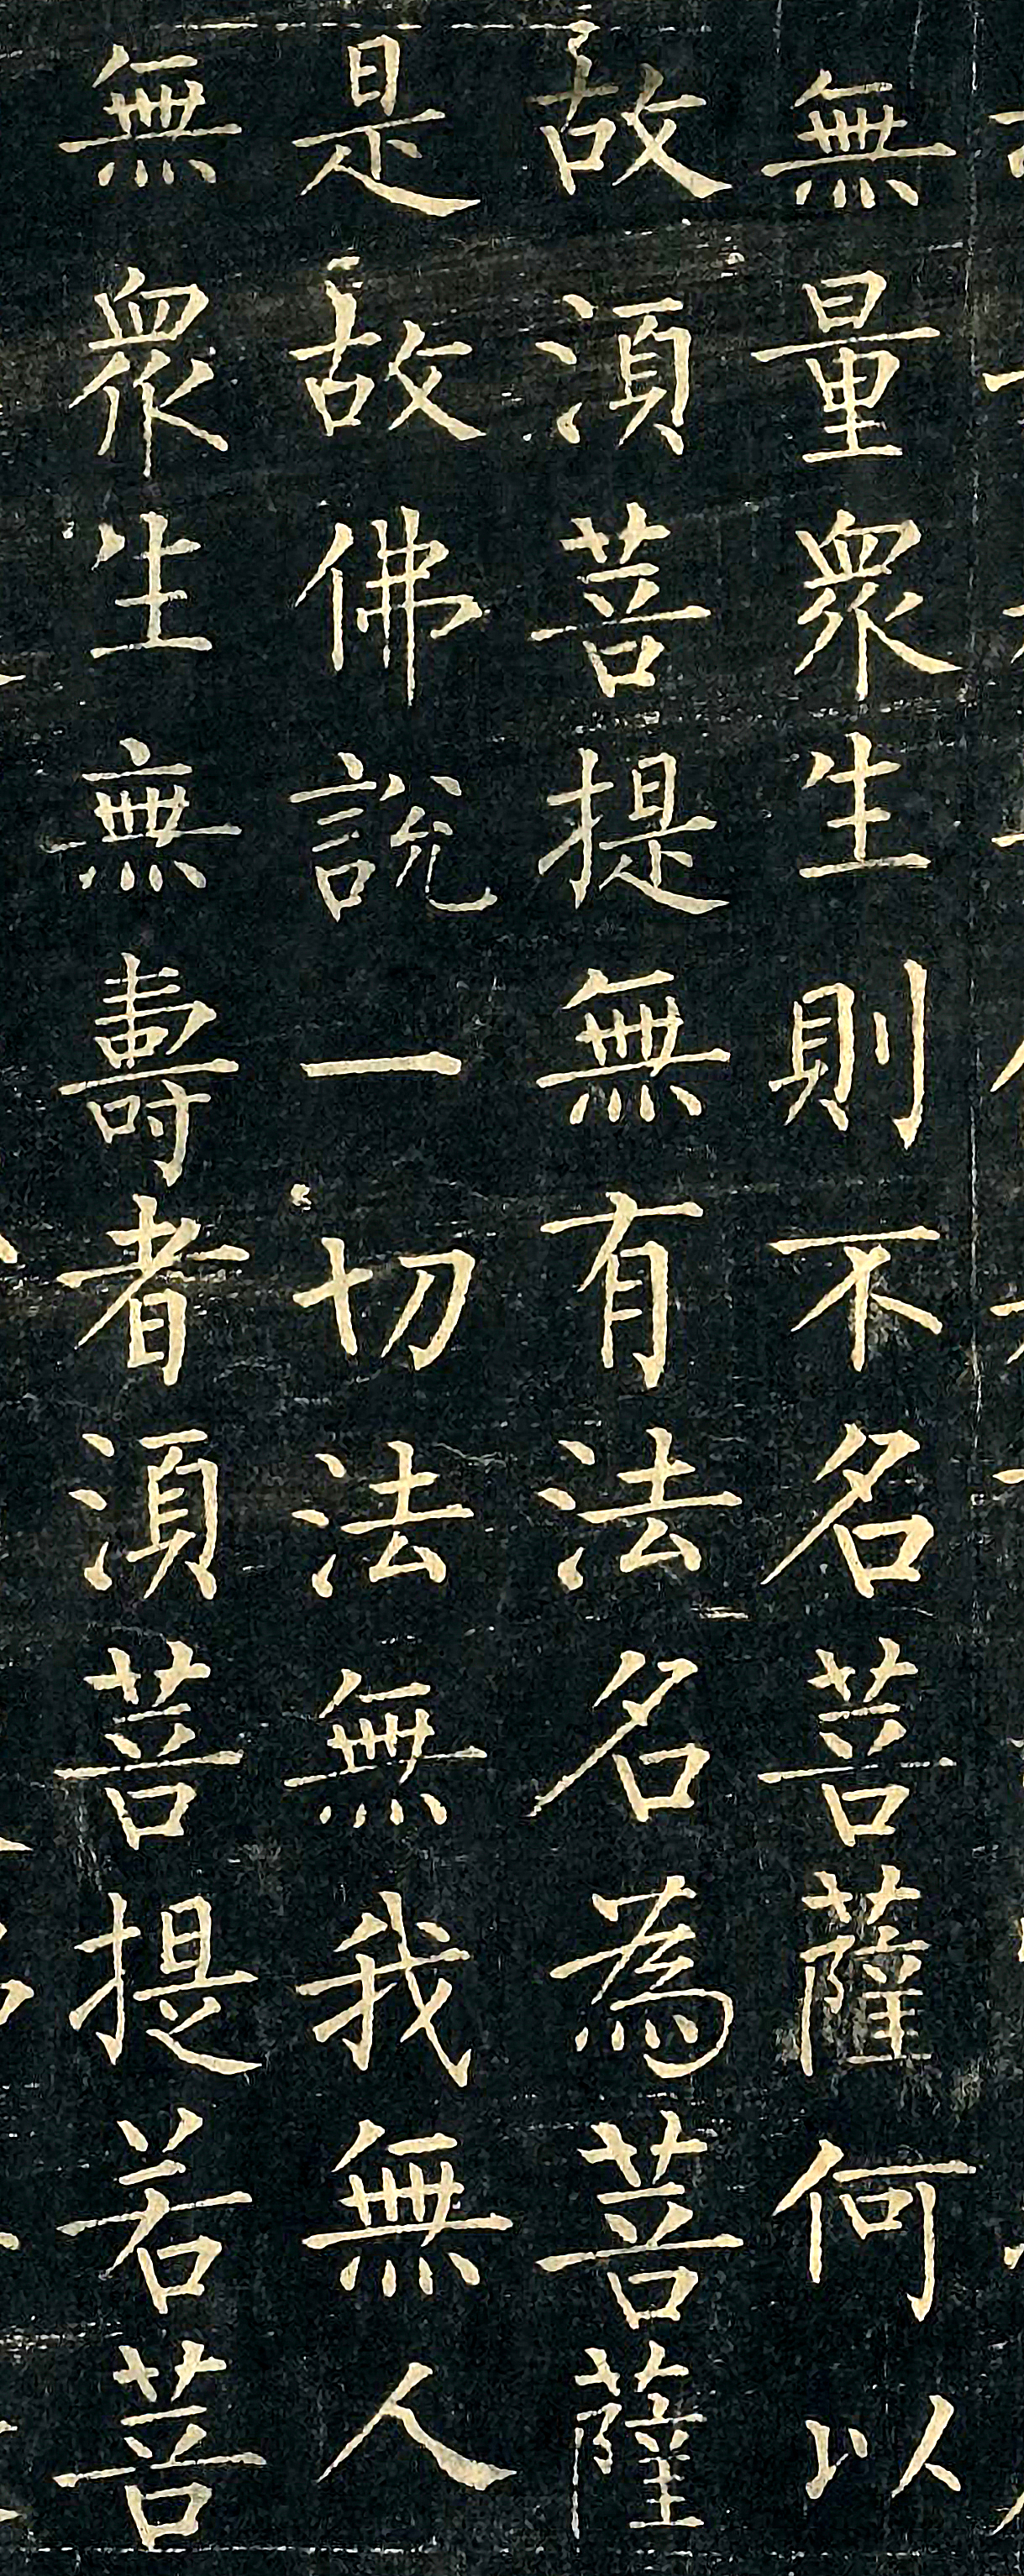 無量衆生則不名菩薩何以
故湏菩提無有法名為菩薩
是故佛說一切法無我無人
無衆生無壽者湏菩提若菩